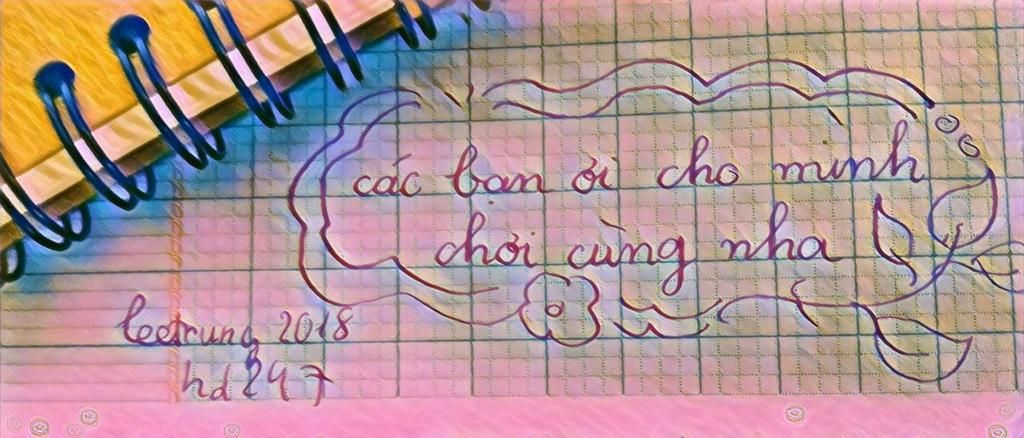 các bạn ơi cho mình
chơi cùng nha
leetrung 2018
hd 247